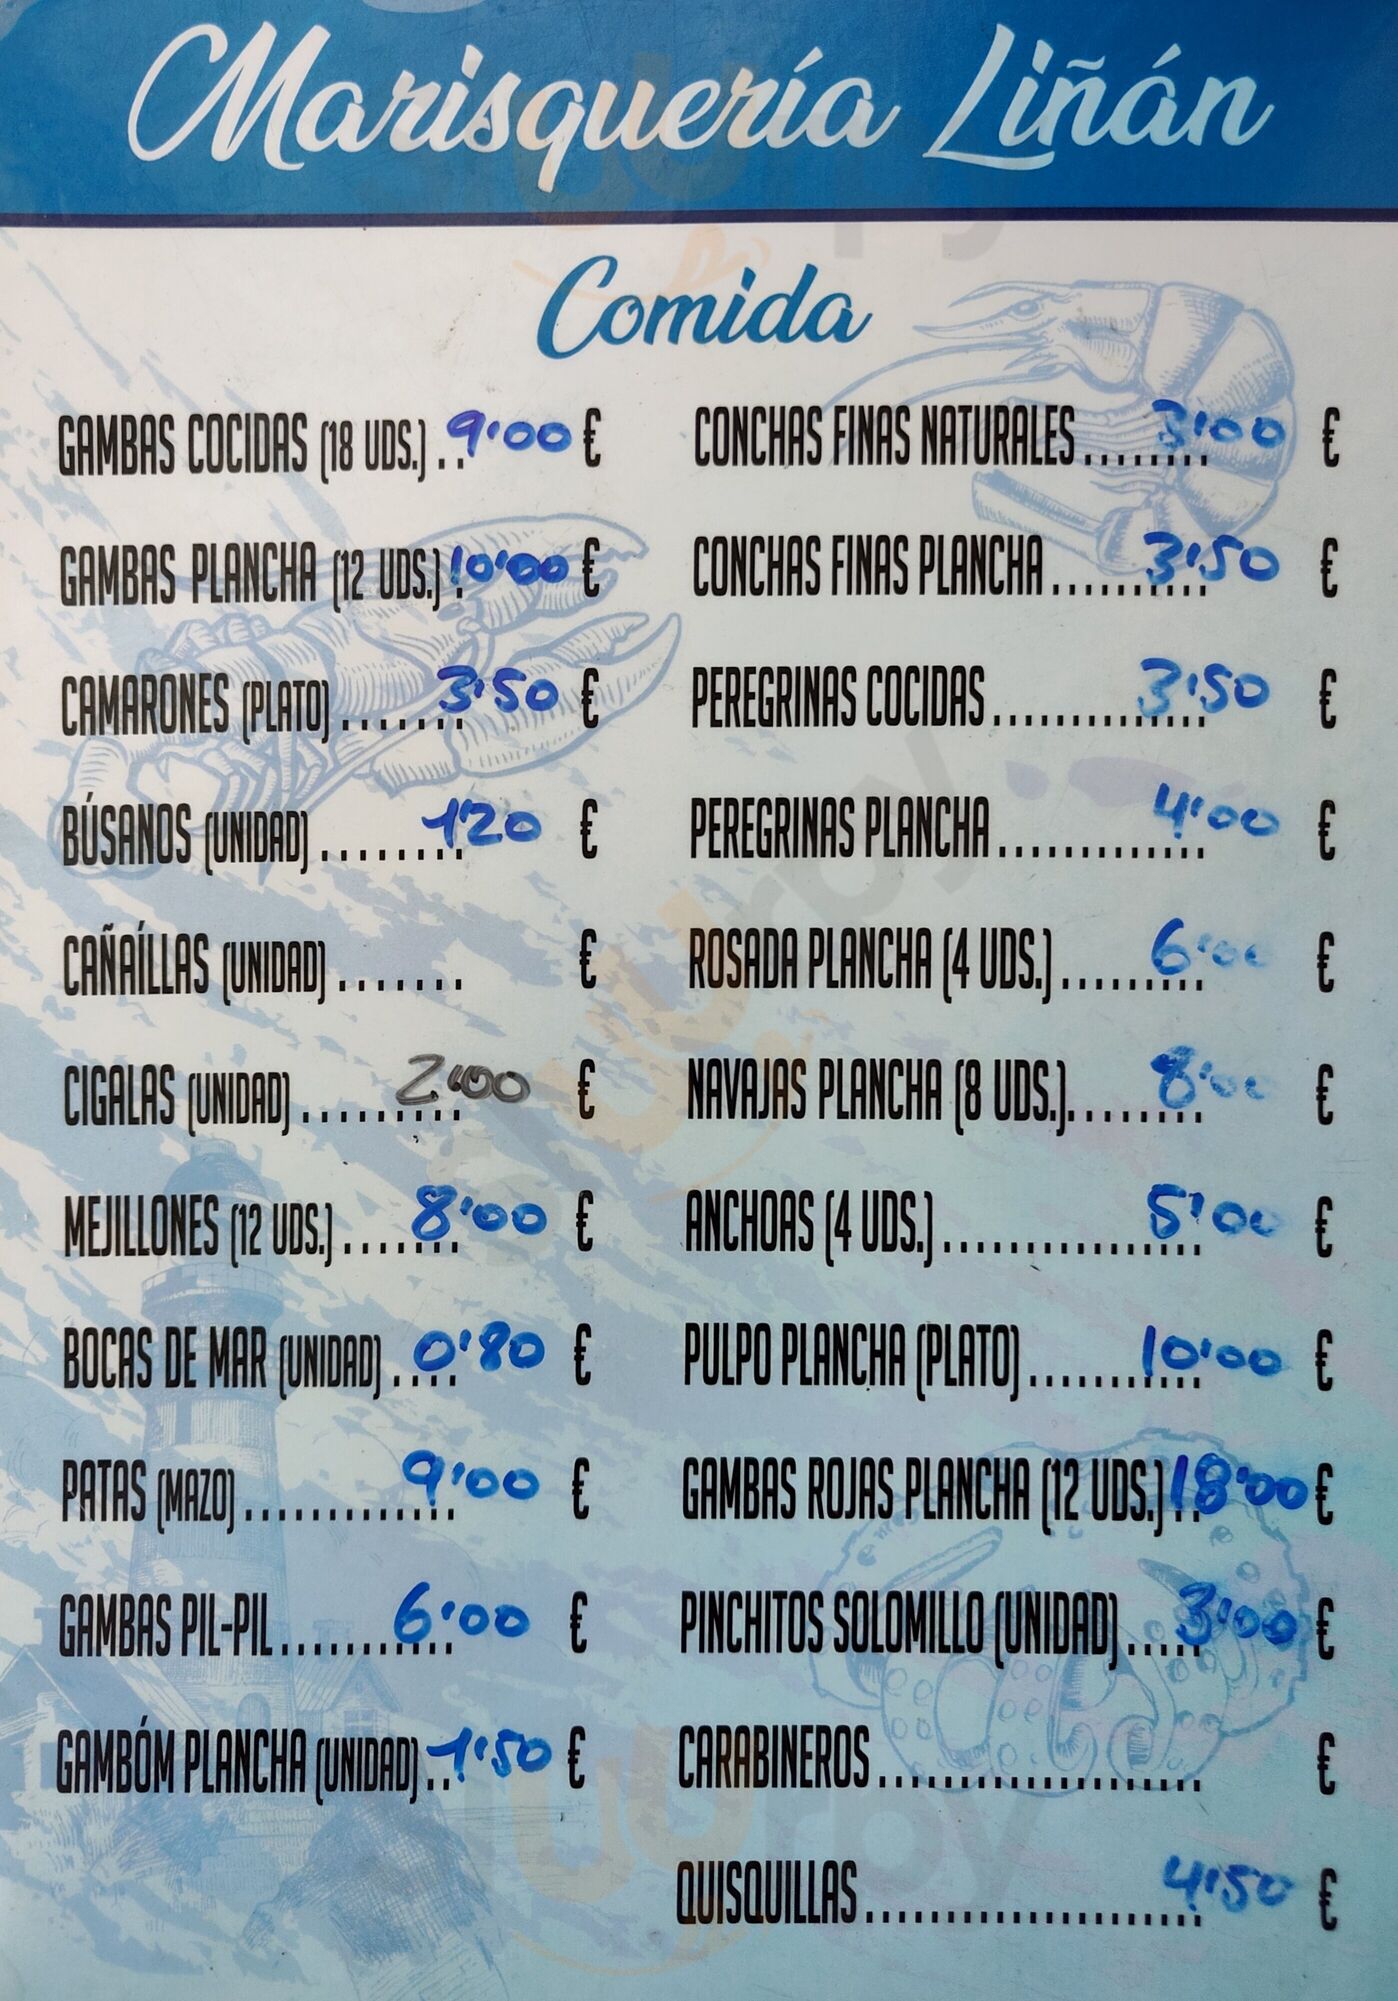 Marisquería Liñán
Comida
GAMBAS COCIDAS (18 UDS.) .. 9'00 €
GAMBAS PLANCHA (12 UDS.) 10'00 €
CAMARONES (PLATO) ....... 3'50 €
BÚSANOS (UNIDAD) ........ 1'20 €
CAÑAÍLLAS (UNIDAD) ....... €
CIGALAS (UNIDAD) ......... 2'00 €
MEJILLONES (12 UDS.) ....... 8'00 €
BOCAS DE MAR (UNIDAD) .... 0'80 €
PATAS (MAZO) ............. 9'00 €
GAMBAS PIL-PIL ........... 6'00 €
GAMBÓM PLANCHA (UNIDAD) .. 1'50 €
CONCHAS FINAS NATURALES ........ 3'00 €
CONCHAS FINAS PLANCHA .......... 3'50 €
PEREGRINAS COCIDAS .............. 3'50 €
PEREGRINAS PLANCHA ............. 4'00 €
ROSADA PLANCHA (4 UDS.) ......... 6'00 €
NAVAJAS PLANCHA (8 UDS.) ........ 8'00 €
ANCHOAS (4 UDS.) ................. 5'00 €
PULPO PLANCHA (PLATO) ........... 10'00 €
GAMBAS ROJAS PLANCHA (12 UDS.) .. 18'00 €
PINCHITOS SOLOMILLO (UNIDAD) ..... 3'00 €
CARABINEROS ..................... €
QUISQUILLAS ...................... 4'50 €